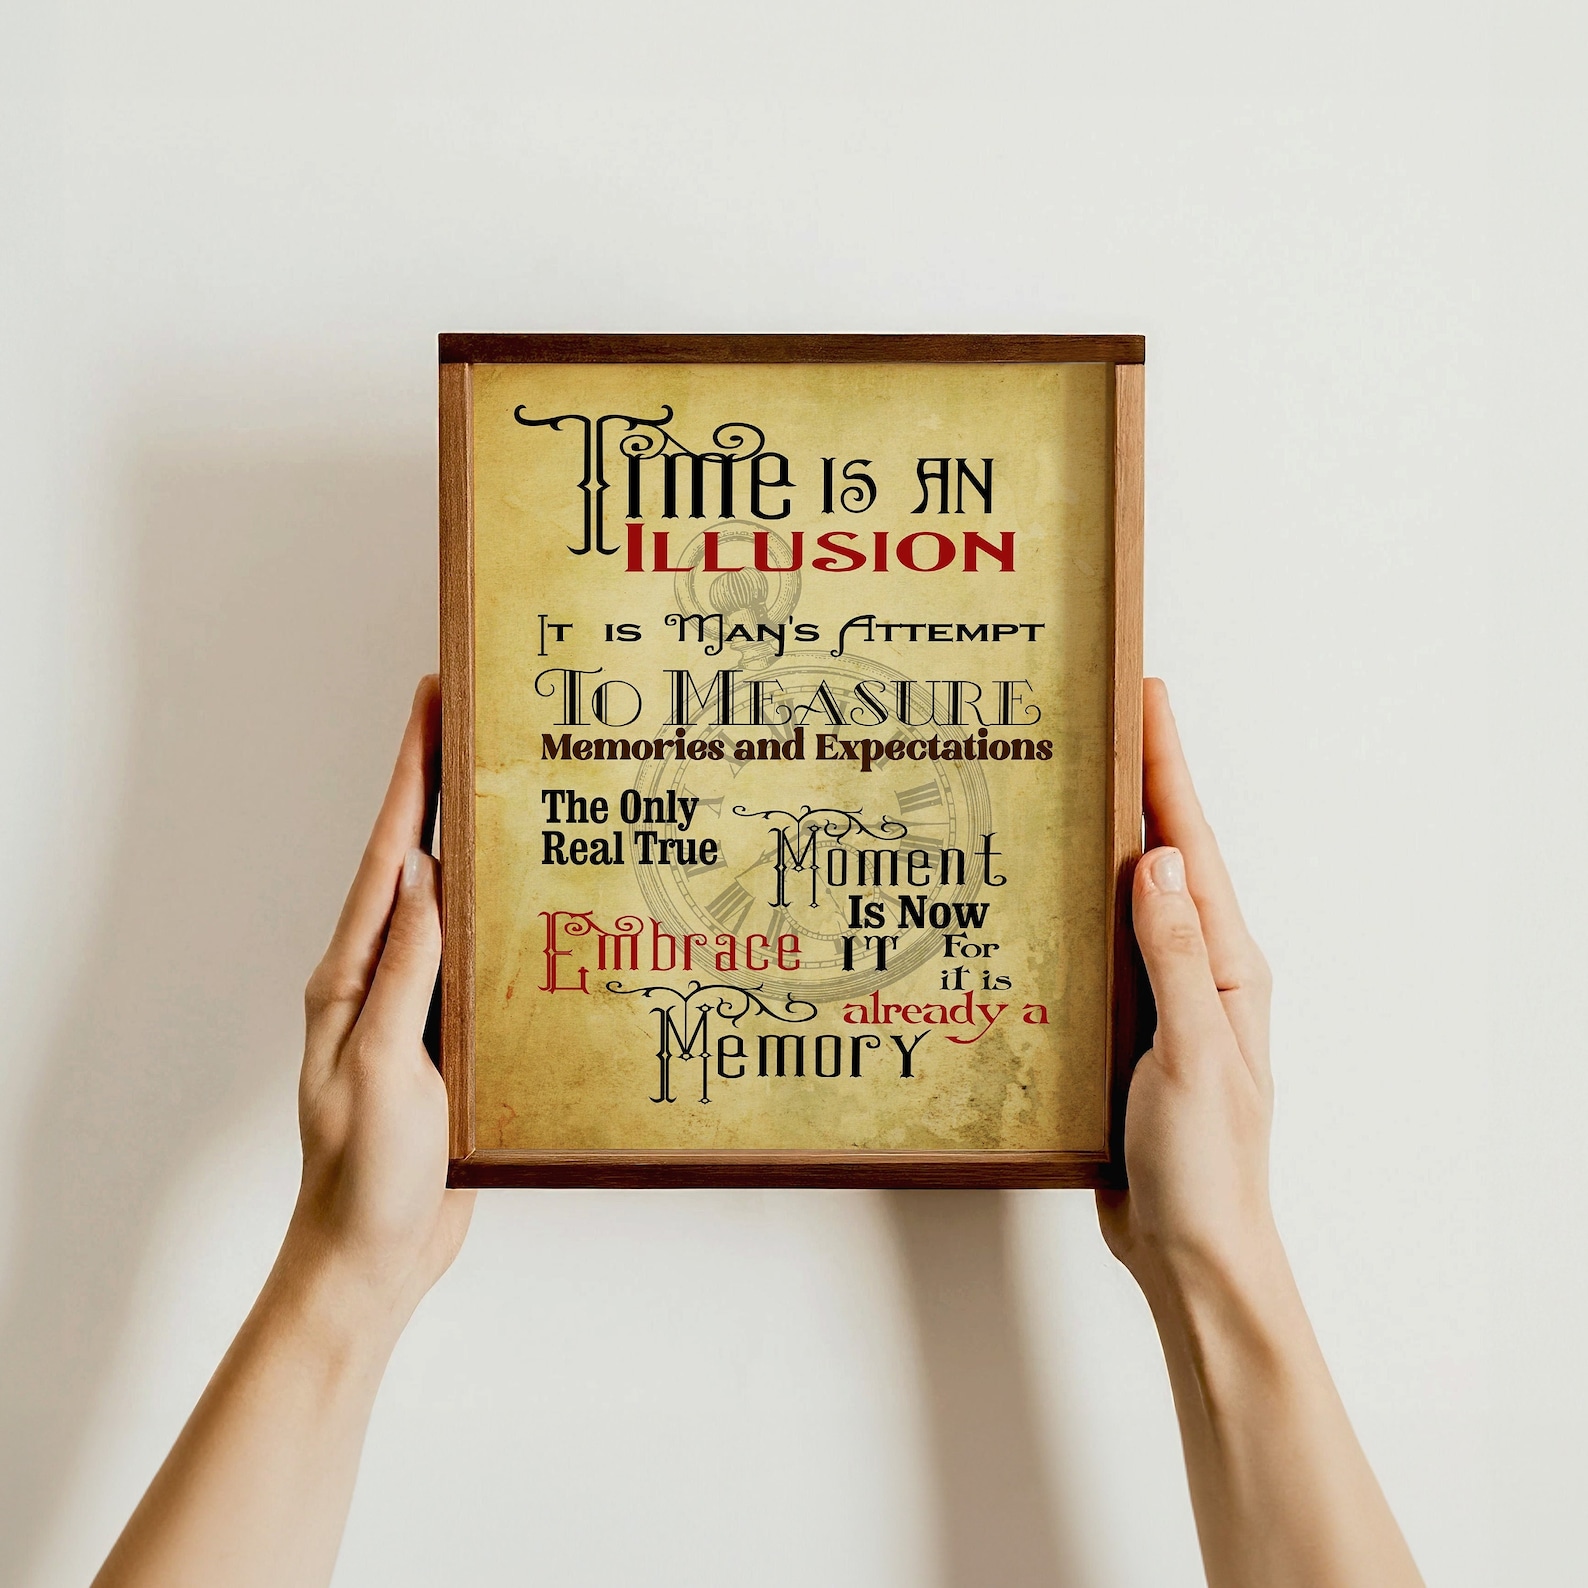 Time is an
Illusion
It is Man's Attempt
To Measure
Memories and Expectations
The Only
Real True
Moment
Is Now
Embrace it For
it is
already a
Memory